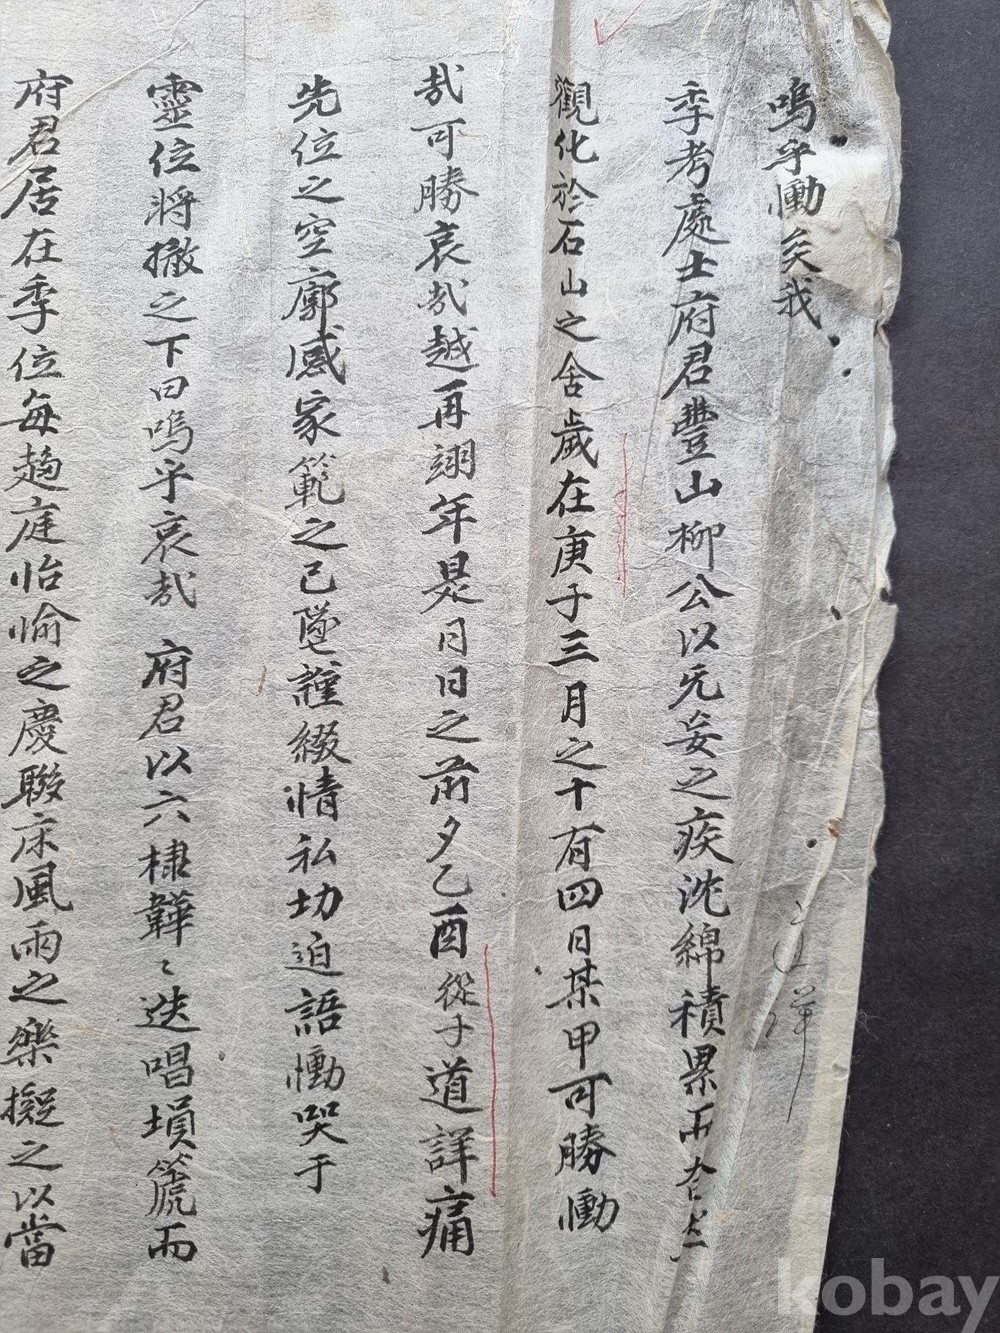 嗚乎慟矣我
季考處士府君豐山柳公以无妄之疾沈綿積累而奄忽
觀化於石山之舍歲在庚子三月之十有四日某甲可勝慟
哉可勝哀哉越再翊年是月日之前夕乙酉從子道詳痛
先位之空廓感家範之已墜謹綴情私切迫語慟哭于
靈位將撤之下曰嗚乎哀哉 府君以六棣韡〻迭唱塤篪而
府君居在季位每趨庭怡愉之慶聯床風雨之樂擬之以當
kobay